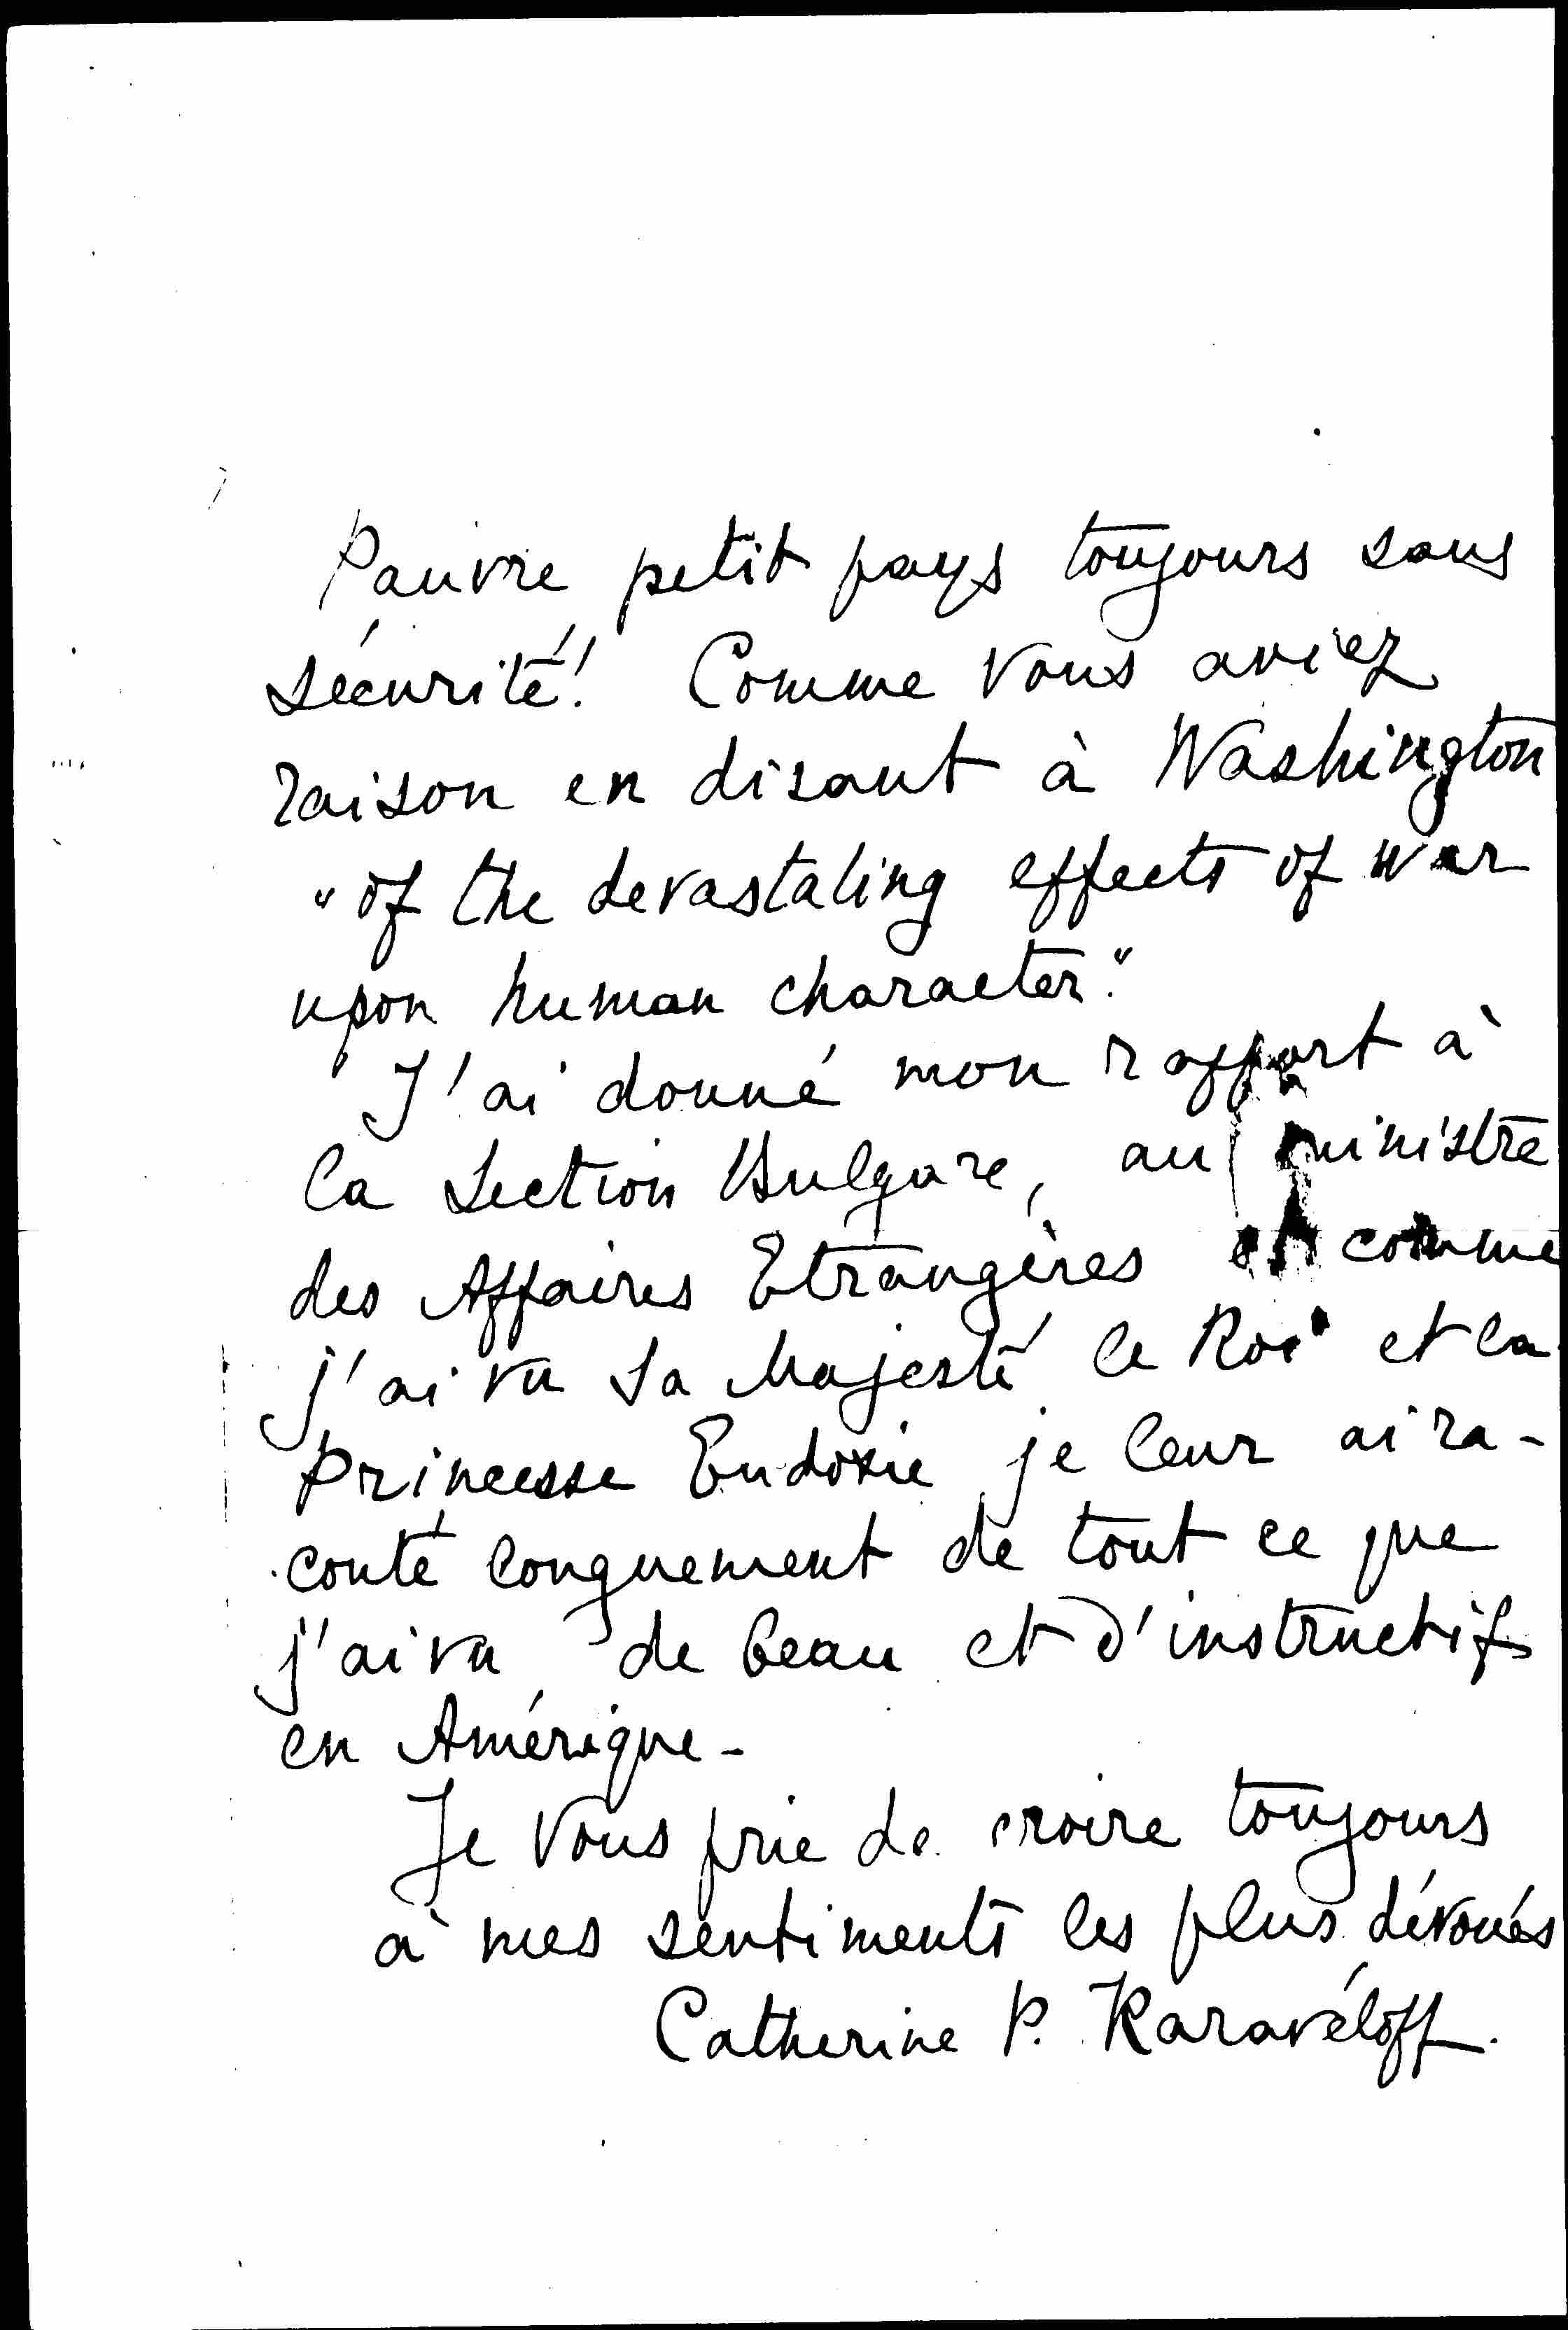 Pauvre petit pays toujours sans
sécurité! Comme Vous aviez
raison en disant à Washington
"of the devastating effects of war
upon human character."
J'ai donné mon rapport à
la Section Bulgare, au ministre
des Affaires Etrangères et comme
j'ai vu Sa Majesté le Roi et la
Princesse Eudoxie je leur ai ra-
conté longuement de tout ce que
j'ai vu de beau et d'instructif
en Amérique -
Je Vous prie de croire toujours
à mes sentiments les plus dévoués
Catherine P. Karavéloff.